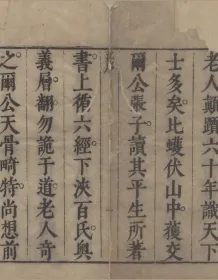 老人顛頭六十年識天下
士多矣比蠖伏山中獲交
爾公張子讀其平生所著
書上循六經下浹百氏奧
義層翻勿詭于道老人奇
之爾公天骨畸特尚想前